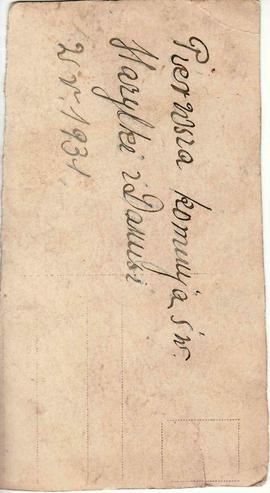 Pierwsza komunja św.
Marylki i Danusi
2 V. 1931.